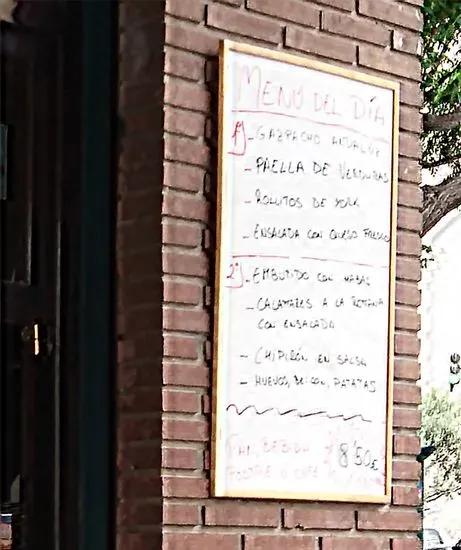 MENÚ DEL DÍA
1º - GAZPACHO ANDALUZ
- PAELLA DE VERDURAS
- ROLLITOS DE YORK
- ENSALADA CON QUESO FRESCO
2º - EMBUTIDO CON HABAS
- CALAMARES A LA ROMANA
CON ENSALADA
- CHIPIRÓN EN SALSA
- HUEVOS, BEICON, PATATAS
PAN, BEBIDA
POSTRE O CAFÉ
8'50€